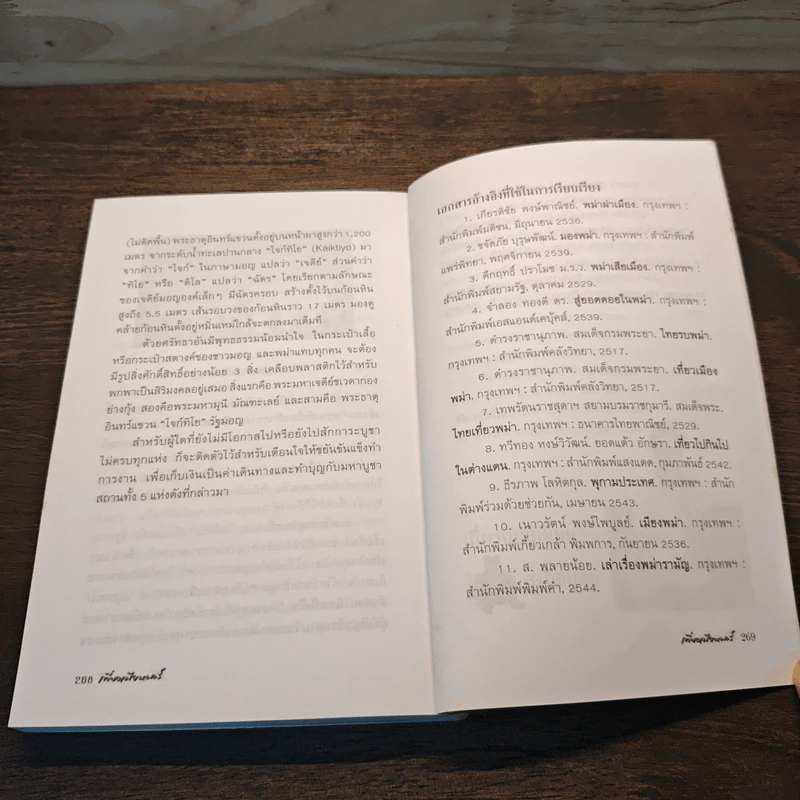 (ไม่ติดพื้น) พระธาตุอินทร์แขวนตั้งอยู่บนหน้าผาสูงกว่า 1,200
เมตร จากระดับน้ำทะเลปานกลาง “ไจก์ทิโย” (Kaiktiyo) มา
จากคำว่า “ไจก์” ในภาษามอญ แปลว่า “เจดีย์” ส่วนคำว่า
“ทิโย” หรือ “ติโล” แปลว่า “ฉัตร” โดยเรียกตามลักษณะ
ของเจดีย์มอญองค์เล็กๆ มีฉัตรครอบ สร้างตั้งไว้บนก้อนหิน
สูงถึง 5.5 เมตร เส้นรอบวงของก้อนหินราว 17 เมตร มองดู
คล้ายก้อนหินตั้งอยู่หมิ่นเหม่ใกล้จะตกลงมาเต็มที
ด้วยศรัทธาอันมีพุทธธรรมน้อมนำใจ ในกระเป๋าเสื้อ
หรือกระเป๋าสตางค์ของชาวมอญ และพม่าแทบทุกคน จะต้อง
มีรูปสิ่งศักดิ์สิทธิ์อย่างน้อย 3 สิ่ง เคลือบพลาสติกไว้สำหรับ
พกพาเป็นสิริมงคลอยู่เสมอ สิ่งแรกคือ พระมหาเจดีย์ชเวดากอง
ย่างกุ้ง สองคือพระมหามุนี มัณฑะเลย์ และสามคือ พระธาตุ
อินทร์แขวน “ไจก์ทิโย” รัฐมอญ
สำหรับผู้ใดที่ยังไม่มีโอกาสไปหรือยังไปสักการะบูชา
ไม่ครบทุกแห่ง ก็จะติดตัวไว้สำหรับเตือนใจให้ขยันขันแข็งทำ
การงาน เพื่อเก็บเงินเป็นค่าเดินทางและทำบุญกับมหาบูชา
สถานทั้ง 5 แห่งดังที่กล่าวมา
268
เอกสารอ้างอิงที่ใช้ในการเรียบเรียง
1. เกียรติชัย พงษ์พาณิชย์. พม่าผ่าเมือง. กรุงเทพฯ :
สำนักพิมพ์มติชน, มิถุนายน 2536.
2. ขจัดภัย บุรุษพัฒน์. มองพม่า. กรุงเทพฯ : สำนักพิมพ์
แพร่พิทยา, พฤศจิกายน 2539.
3. คึกฤทธิ์ ปราโมช ม.ร.ว. พม่าเสียเมือง. กรุงเทพฯ :
สำนักพิมพ์สยามรัฐ, ตุลาคม 2529.
4. จำลอง ทองดี ดร. สู่ยอดดอยในพม่า. กรุงเทพฯ :
สำนักพิมพ์เอสแอนด์เคบุ๊คส์, 2539.
5. ดำรงราชานุภาพ. สมเด็จกรมพระยา. ไทยรบพม่า.
กรุงเทพฯ : สำนักพิมพ์คลังวิทยา, 2517.
6. ดำรงราชานุภาพ. สมเด็จกรมพระยา. เที่ยวเมือง
พม่า. กรุงเทพฯ : สำนักพิมพ์คลังวิทยา, 2517.
7. เทพรัตนราชสุดาฯ สยามบรมราชกุมารี. สมเด็จพระ.
ไทยเที่ยวพม่า. กรุงเทพฯ : ธนาคารไทยพาณิชย์, 2529.
8. ทวีทอง หงษ์วิวัฒน์. ยอดแต้ว อักษรา. เที่ยวไปกินไป
ในต่างแดน. กรุงเทพฯ : สำนักพิมพ์แสงแดด, กุมภาพันธ์ 2542.
9. ธีรภาพ โลหิตกุล. พุกามประเทศ. กรุงเทพฯ : สำนัก
พิมพ์ร่วมด้วยช่วยกัน, เมษายน 2543.
10. เนาวรัตน์ พงษ์ไพบูลย์. เมียงพม่า. กรุงเทพฯ :
สำนักพิมพ์เกี้ยวเกล้า พิมพการ, กันยายน 2536.
11. ส. พลายน้อย. เล่าเรื่องพม่ารามัญ. กรุงเทพฯ :
สำนักพิมพ์พิมพ์คำ, 2544.
269